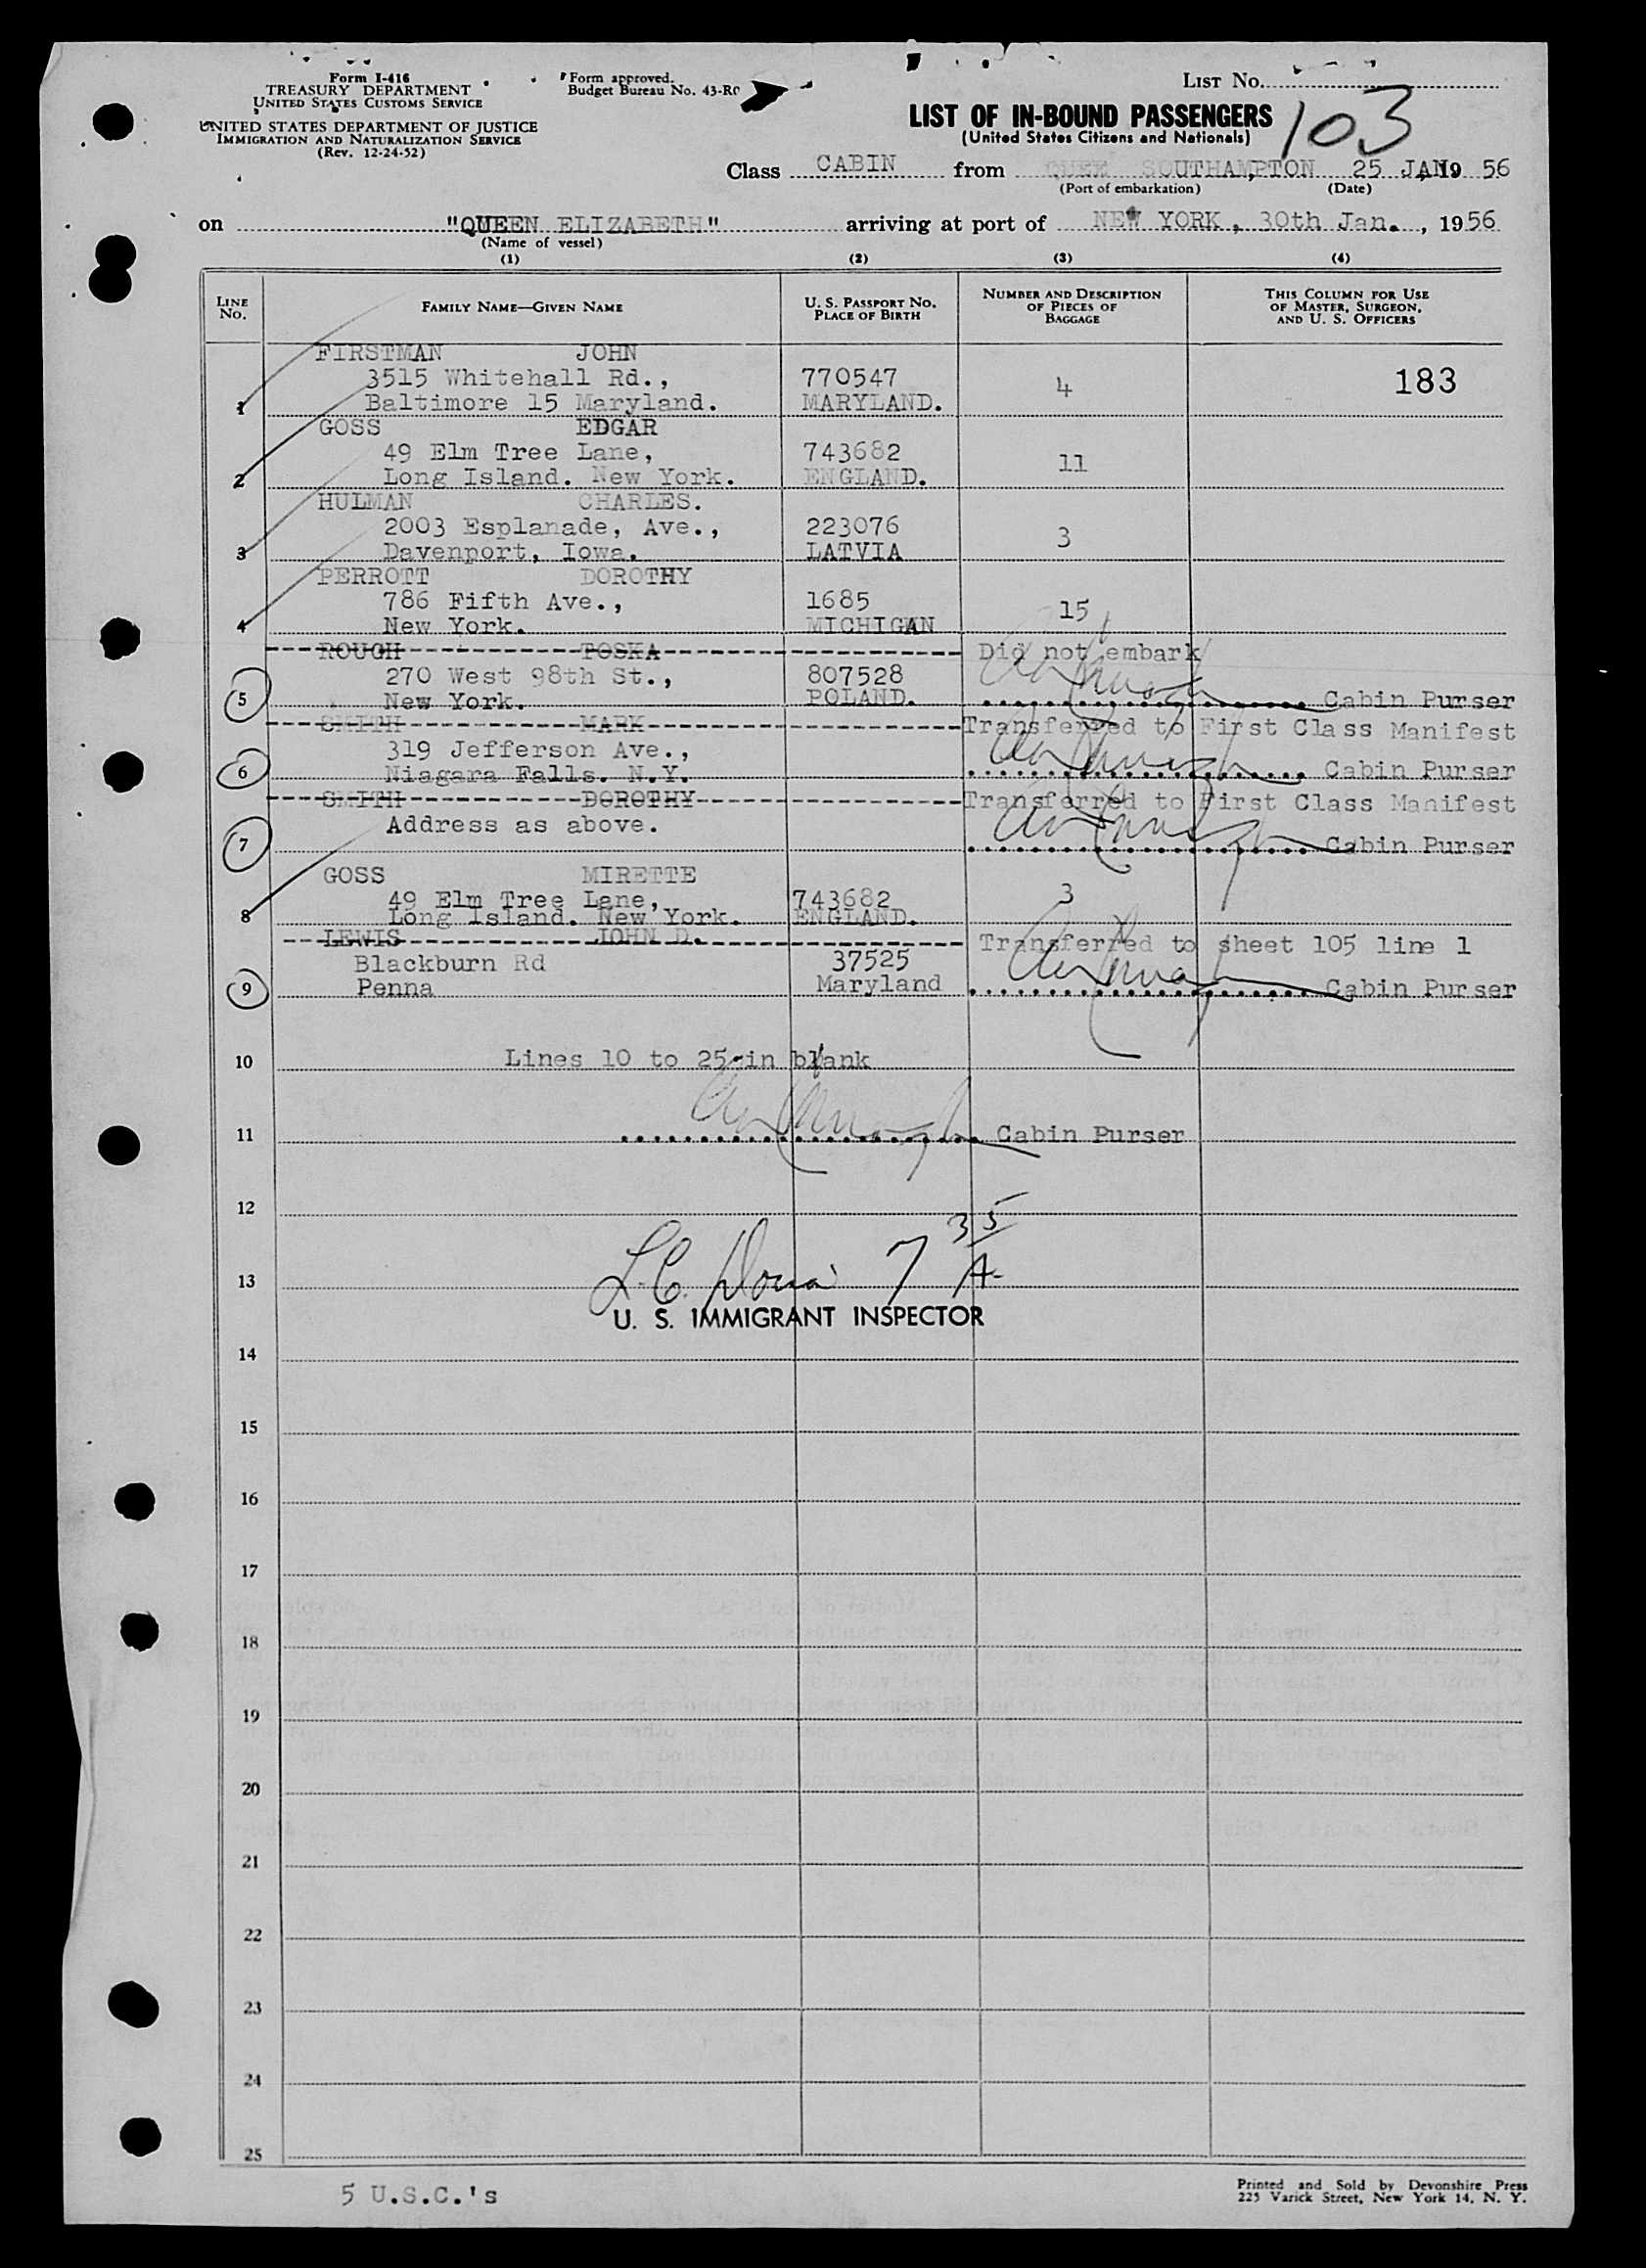 Form I-416
TREASURY DEPARTMENT
UNITED STATES CUSTOMS SERVICE
UNITED STATES DEPARTMENT OF JUSTICE
IMMIGRATION AND NATURALIZATION SERVICE
(Rev. 12-24-52)
Form approved.
Budget Bureau No. 43-R0
LIST NO.
103
LIST OF IN-BOUND PASSENGERS
(United States Citizens and Nationals)
Class CABIN from SOUTHAMPTON 25 JAN, 19 56
(Port of embarkation) (Date)
on "QUEEN ELIZABETH" arriving at port of NEW YORK, 30th Jan. , 1956
(Name of vessel)
(1) (2) (3) (4)
LINE NO. FAMILY NAME—GIVEN NAME U. S. PASSPORT NO. PLACE OF BIRTH NUMBER AND DESCRIPTION OF PIECES OF BAGGAGE THIS COLUMN FOR USE OF MASTER, SURGEON, AND U. S. OFFICERS
FIRSTMAN JOHN
3515 Whitehall Rd., 770547 4 183
1 Baltimore 15 Maryland. MARYLAND.
GOSS EDGAR
49 Elm Tree Lane, 743682 11
2 Long Island. New York. ENGLAND.
HULMAN CHARLES.
2003 Esplanade, Ave., 223076 3
3 Davenport, Iowa. LATVIA
PERROTT DOROTHY
786 Fifth Ave., 1685 15
4 New York. MICHIGAN
ROUGH TOSKA Did not embark
270 West 98th St., 807528
5 New York. POLAND. Cabin Purser
SMITH MARK Transferred to First Class Manifest
319 Jefferson Ave.,
6 Niagara Falls. N.Y. Cabin Purser
SMITH DOROTHY Transferred to First Class Manifest
Address as above.
7 Cabin Purser
GOSS MIRETTE
49 Elm Tree Lane, 743682 3
8 Long Island. New York. ENGLAND.
LEWIS JOHN D. Transferred to sheet 105 line 1
Blackburn Rd 37525
9 Penna Maryland Cabin Purser
10 Lines 10 to 25 in blank
11 Cabin Purser
12
7 35/A-
13
U. S. IMMIGRANT INSPECTOR
14
15
16
17
18
19
20
21
22
23
24
25
5 U.S.C.'s
Printed and Sold by Devonshire Press
225 Varick Street, New York 14, N. Y.